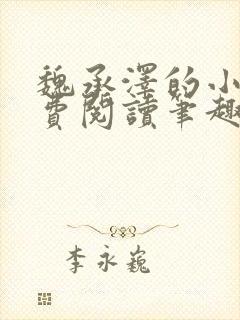 魏承澤的小
費閱讀筆趣
李永巍